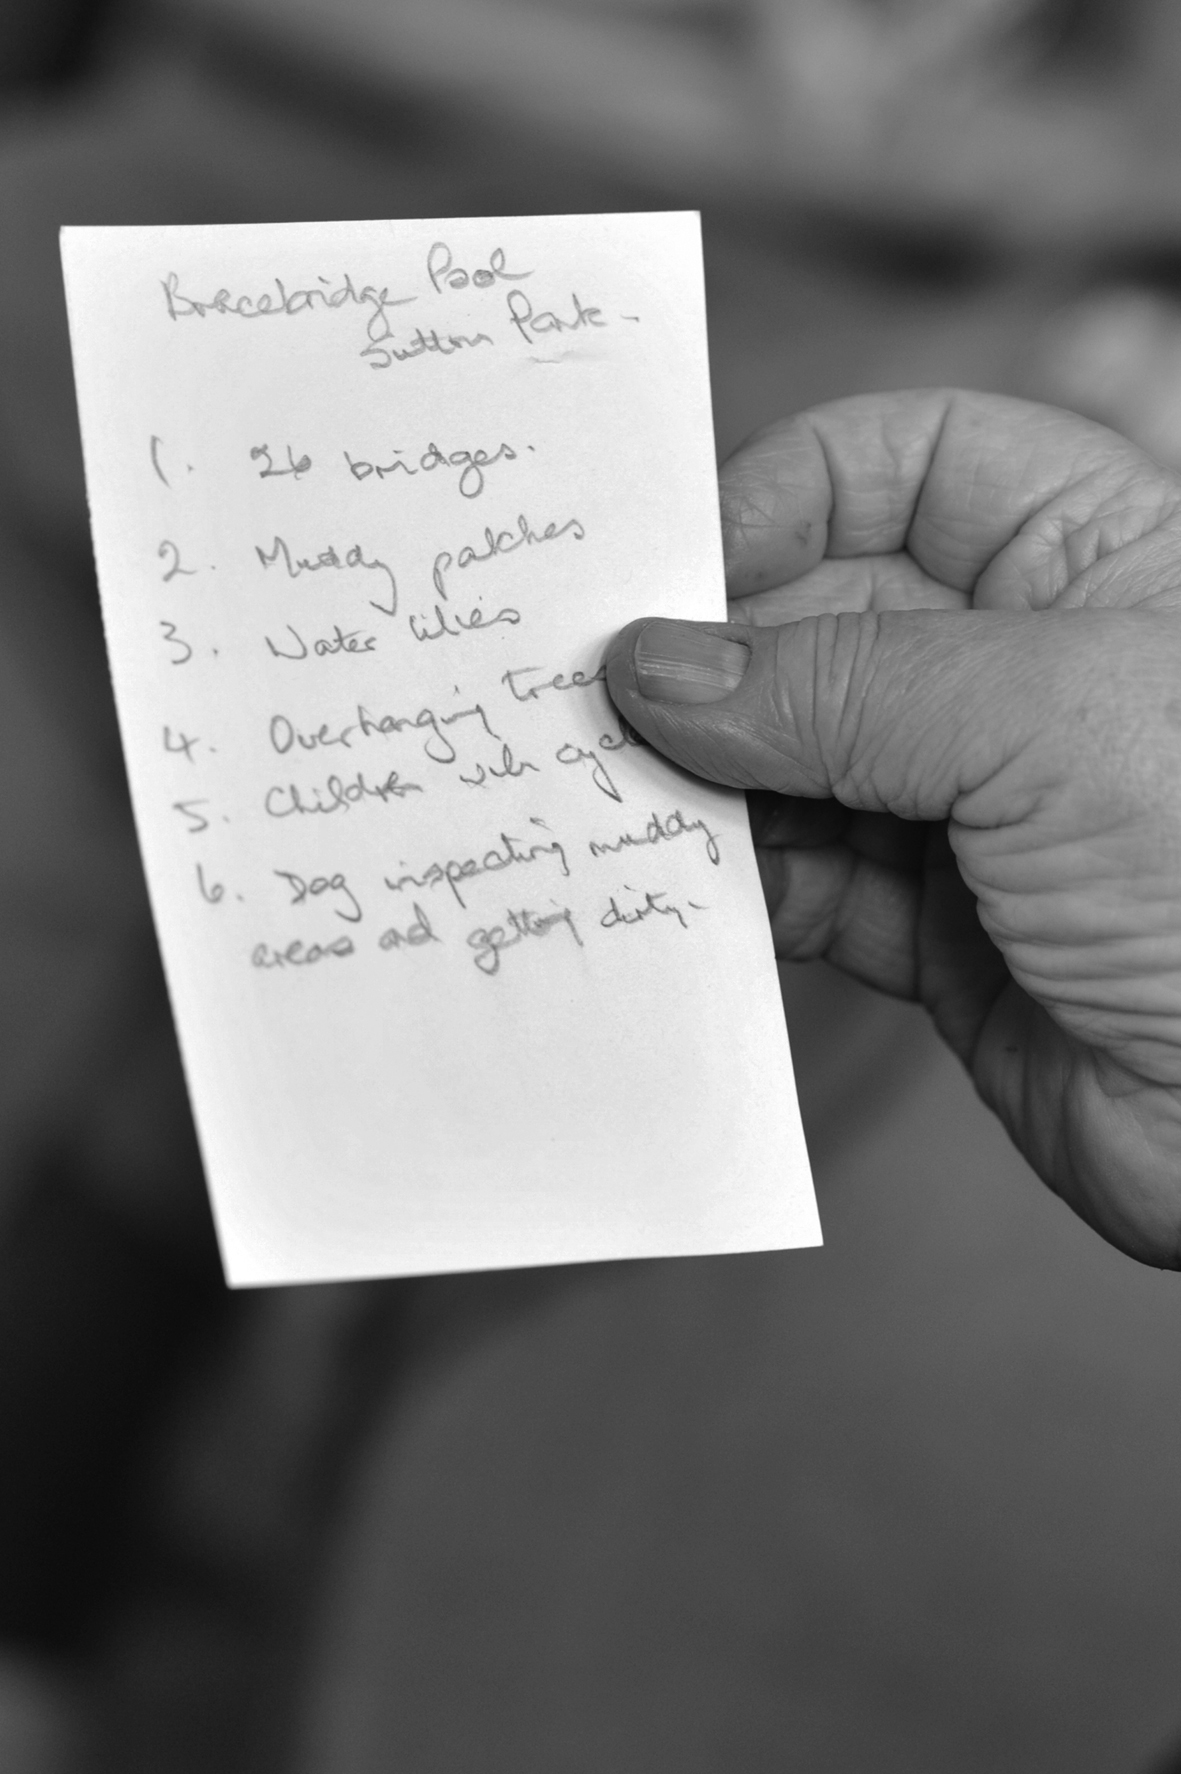 Bracebridge Pool
Sutton Park -
1. 26 bridges.
2. Muddy patches
3. Water lilies
4. Overhanging trees
5. Children with
6. Dog inspecting muddy
areas and getting dirty.